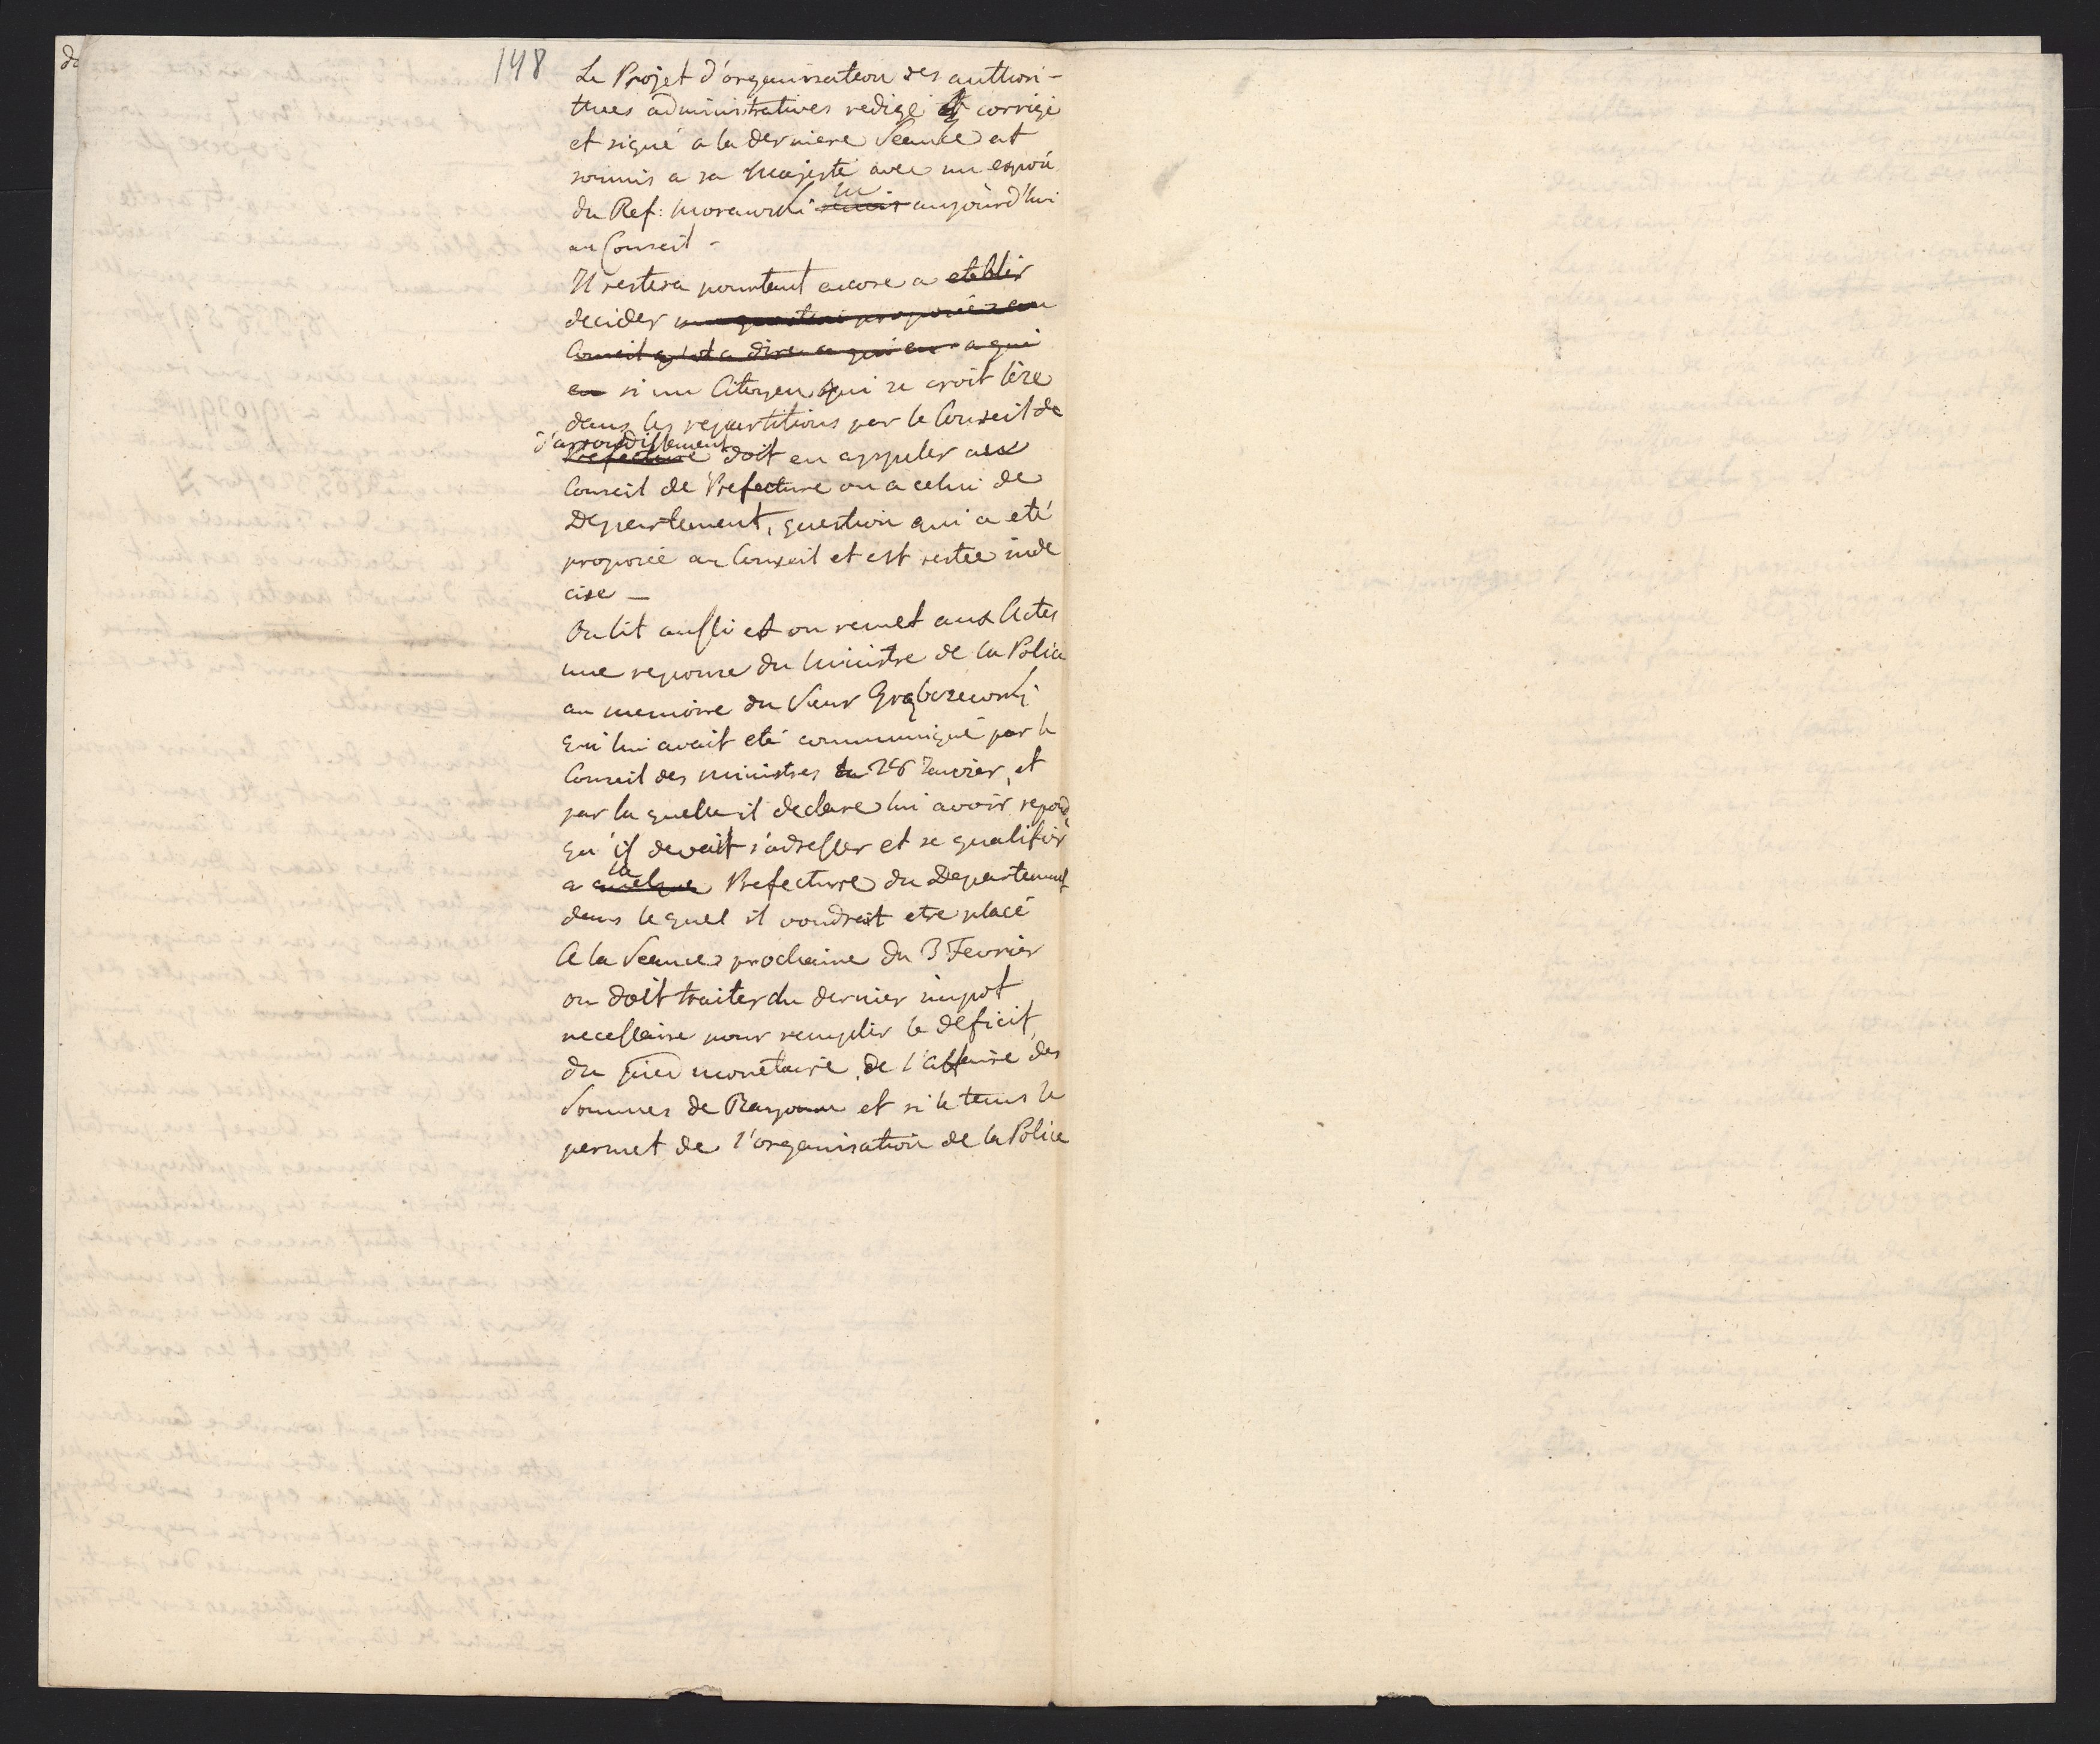 148
Le Projet d'organisation des authori-
thées administratives redigé et corrigé
et signé a la derniere Seance est
soumis a sa Majesté avec un exposé
du Ref: Morawski lu aujourd'hui
au Conseil -
Il restera pourtant encore a etablir
decider une question proposée au
Conseil c'est a dire a qui en a qui
en si un Citoyen qui se croit lèzé
dans les repartitions par le Conseil de
d'arrondissement
Prefecture doit en appeler au
Conseil de Prefecture ou a celui de
Departement, question qui a eté
proposée au Conseil et est restée inde
cise -
On lit aussi et on remet aux Actes
une reponse du Ministre de la Police
au memoire du Sieur Grąbczewski
qui lui avait eté communiqué par le
Conseil des Ministres le 28 Janvier, et
par la quelle il declare lui avoir repondu
qu'il devait s'adresser et se qualifier
la
a quelque Prefecture du Departement
dans lequel il voudrait etre placé
A la Seance prochaine du 3 Fevrier
on doit traiter du dernier impot
necessaire pour remplir le deficit,
du pied monetaire, de l'affaire des
Sommes de Bayonne et si le tems le
permet de l'organisation de la Police